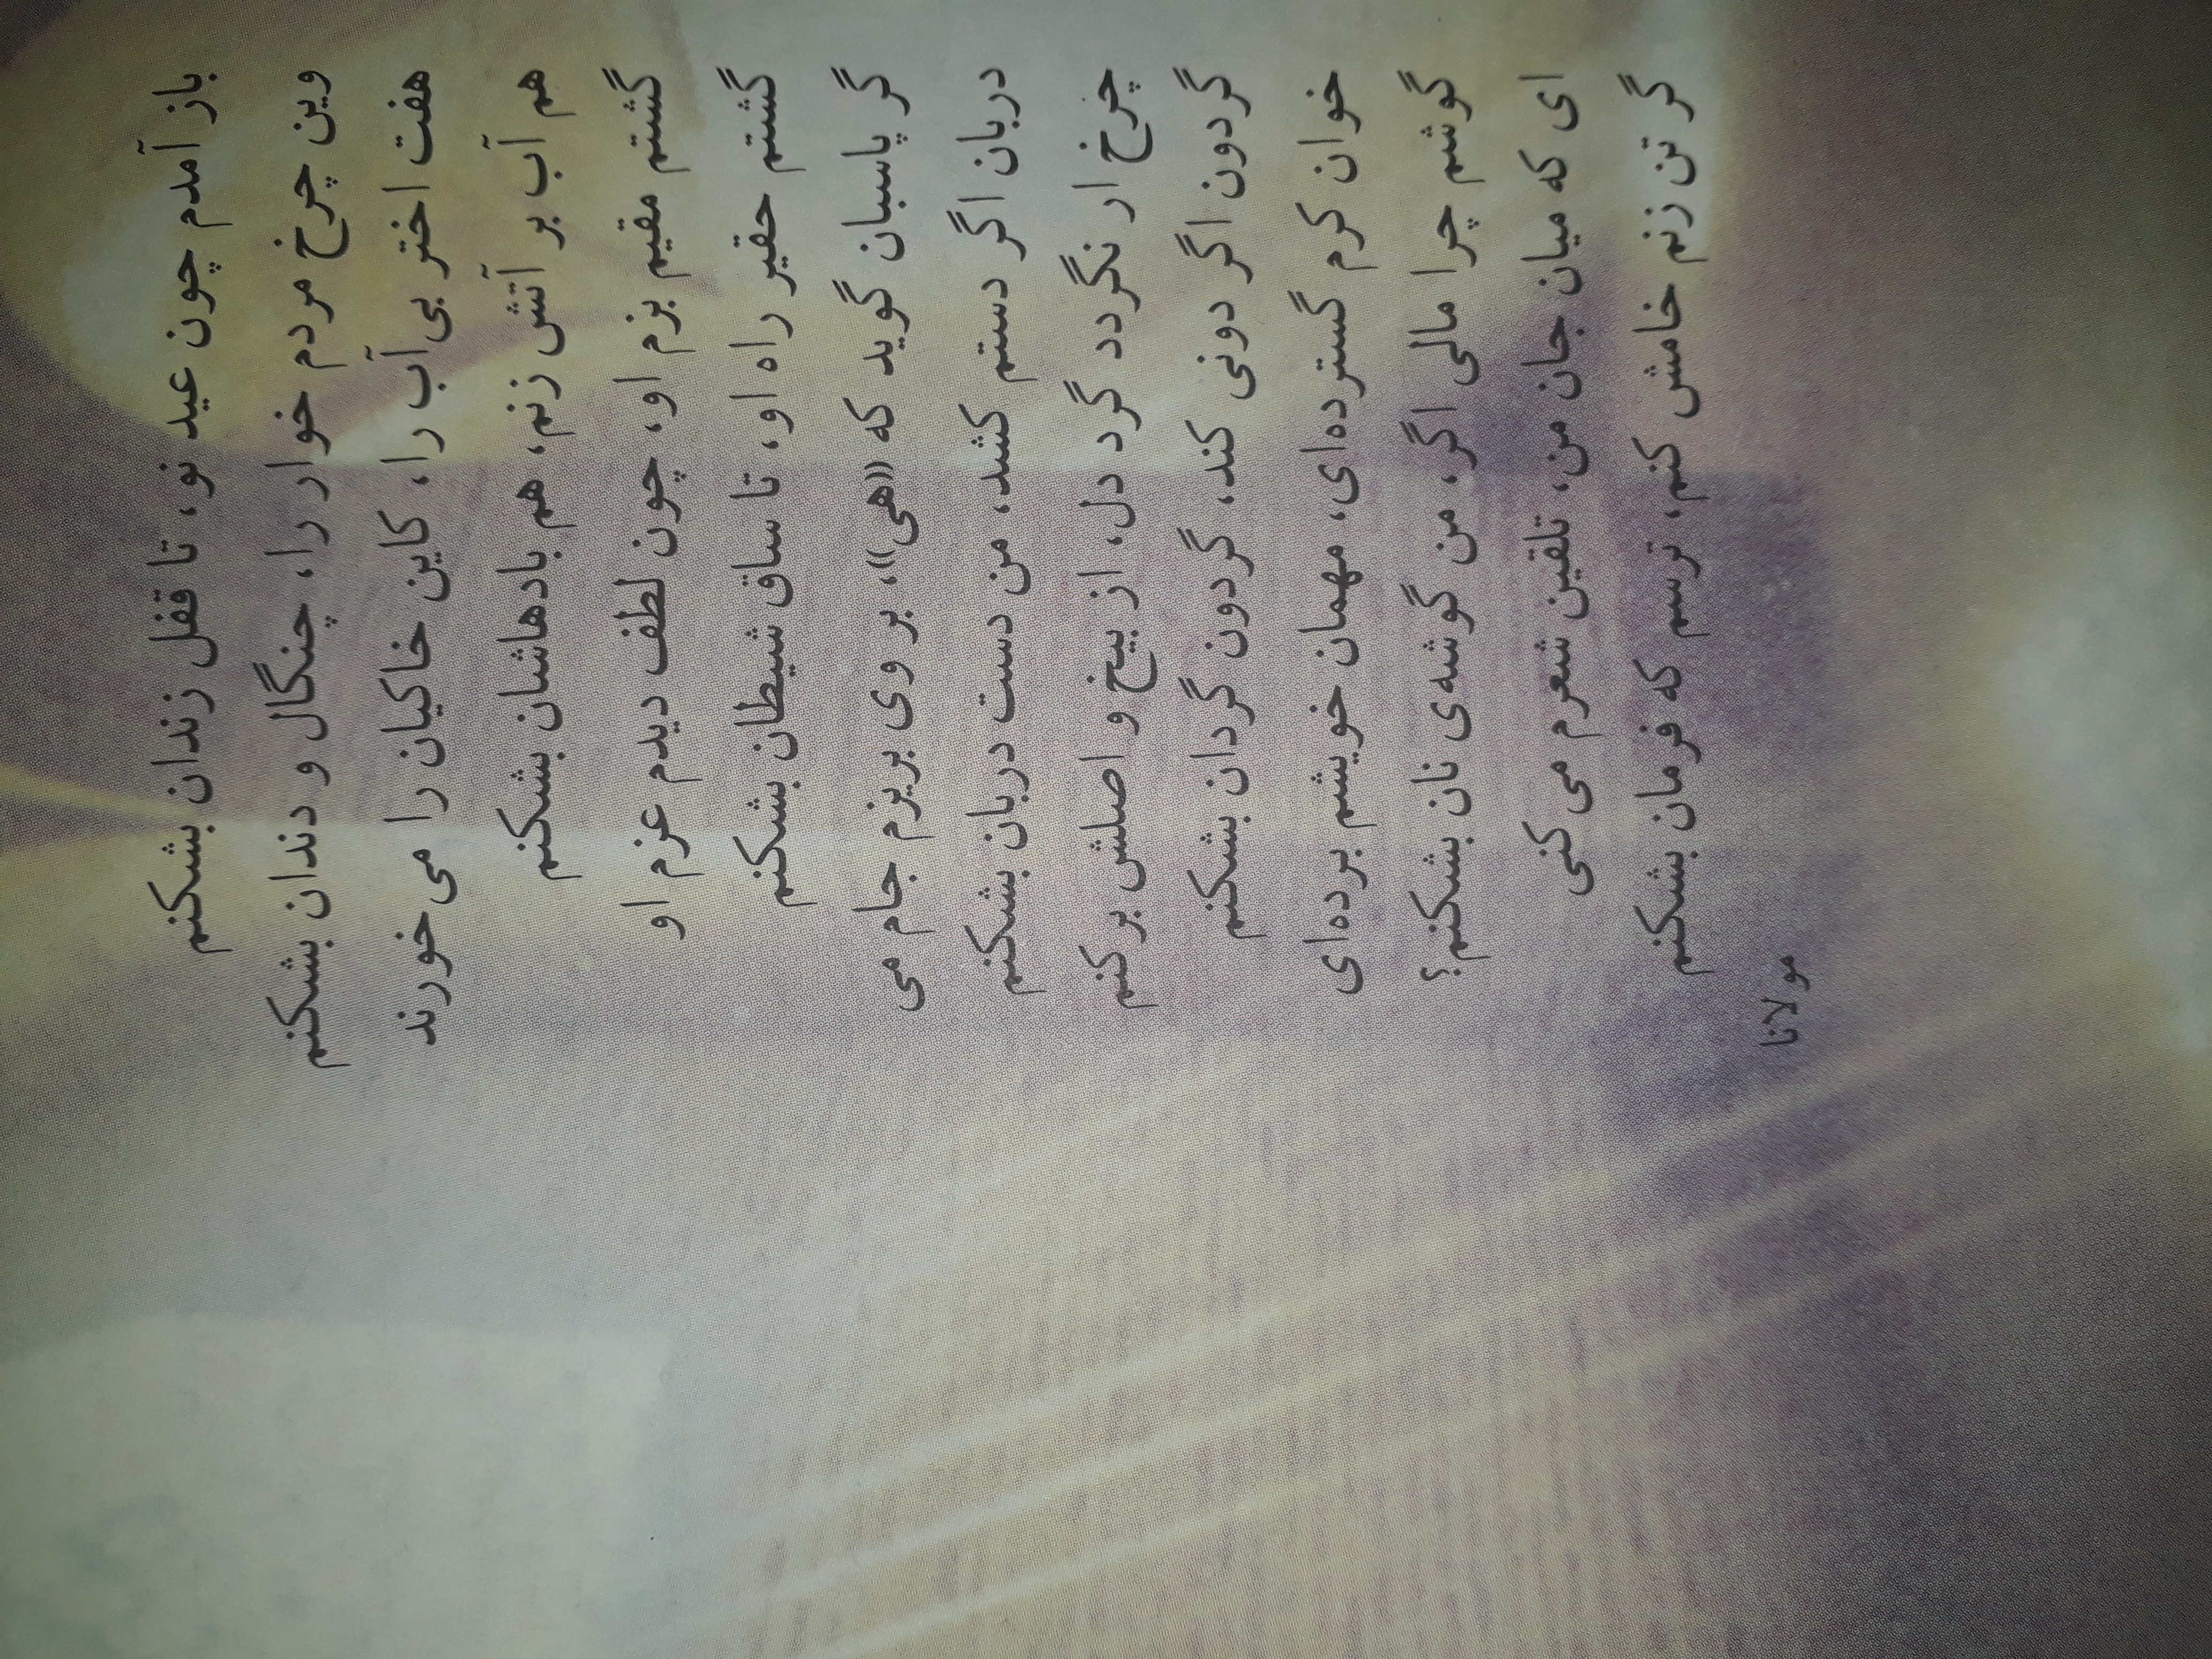 باز آمدم چون عید نو، تا قفل زندان بشکنم
وین چرخ مردم خوار را، چنگال و دندان بشکنم
هفت اختر بی‌آب را، کاین خاکیان را می‌خورند
هم آب بر آتش زنم، هم بادهاشان بشکنم
گشتم مقیم بزم او، چون لطف دیدم عزم او
گشتم حقیر راه او، تا ساق شیطان بشکنم
گر پاسبان گوید که «هی»، بر وی بریزم جام می
دربان اگر دستم کشد، من دست دربان بشکنم
چرخ ار نگردد گرد دل، از بیخ و اصلش بر کنم
گردون اگر دونی کند، گردون گردان بشکنم
خوان کرم گسترده‌ای، مهمان خویشم برده‌ای
گوشم چرا مالی اگر، من گوشه‌ی نان بشکنم؟
ای که میان جان من، تلقین شعرم می کنی
گر تن زنم خامش کنم، ترسم که فرمان بشکنم
مولانا